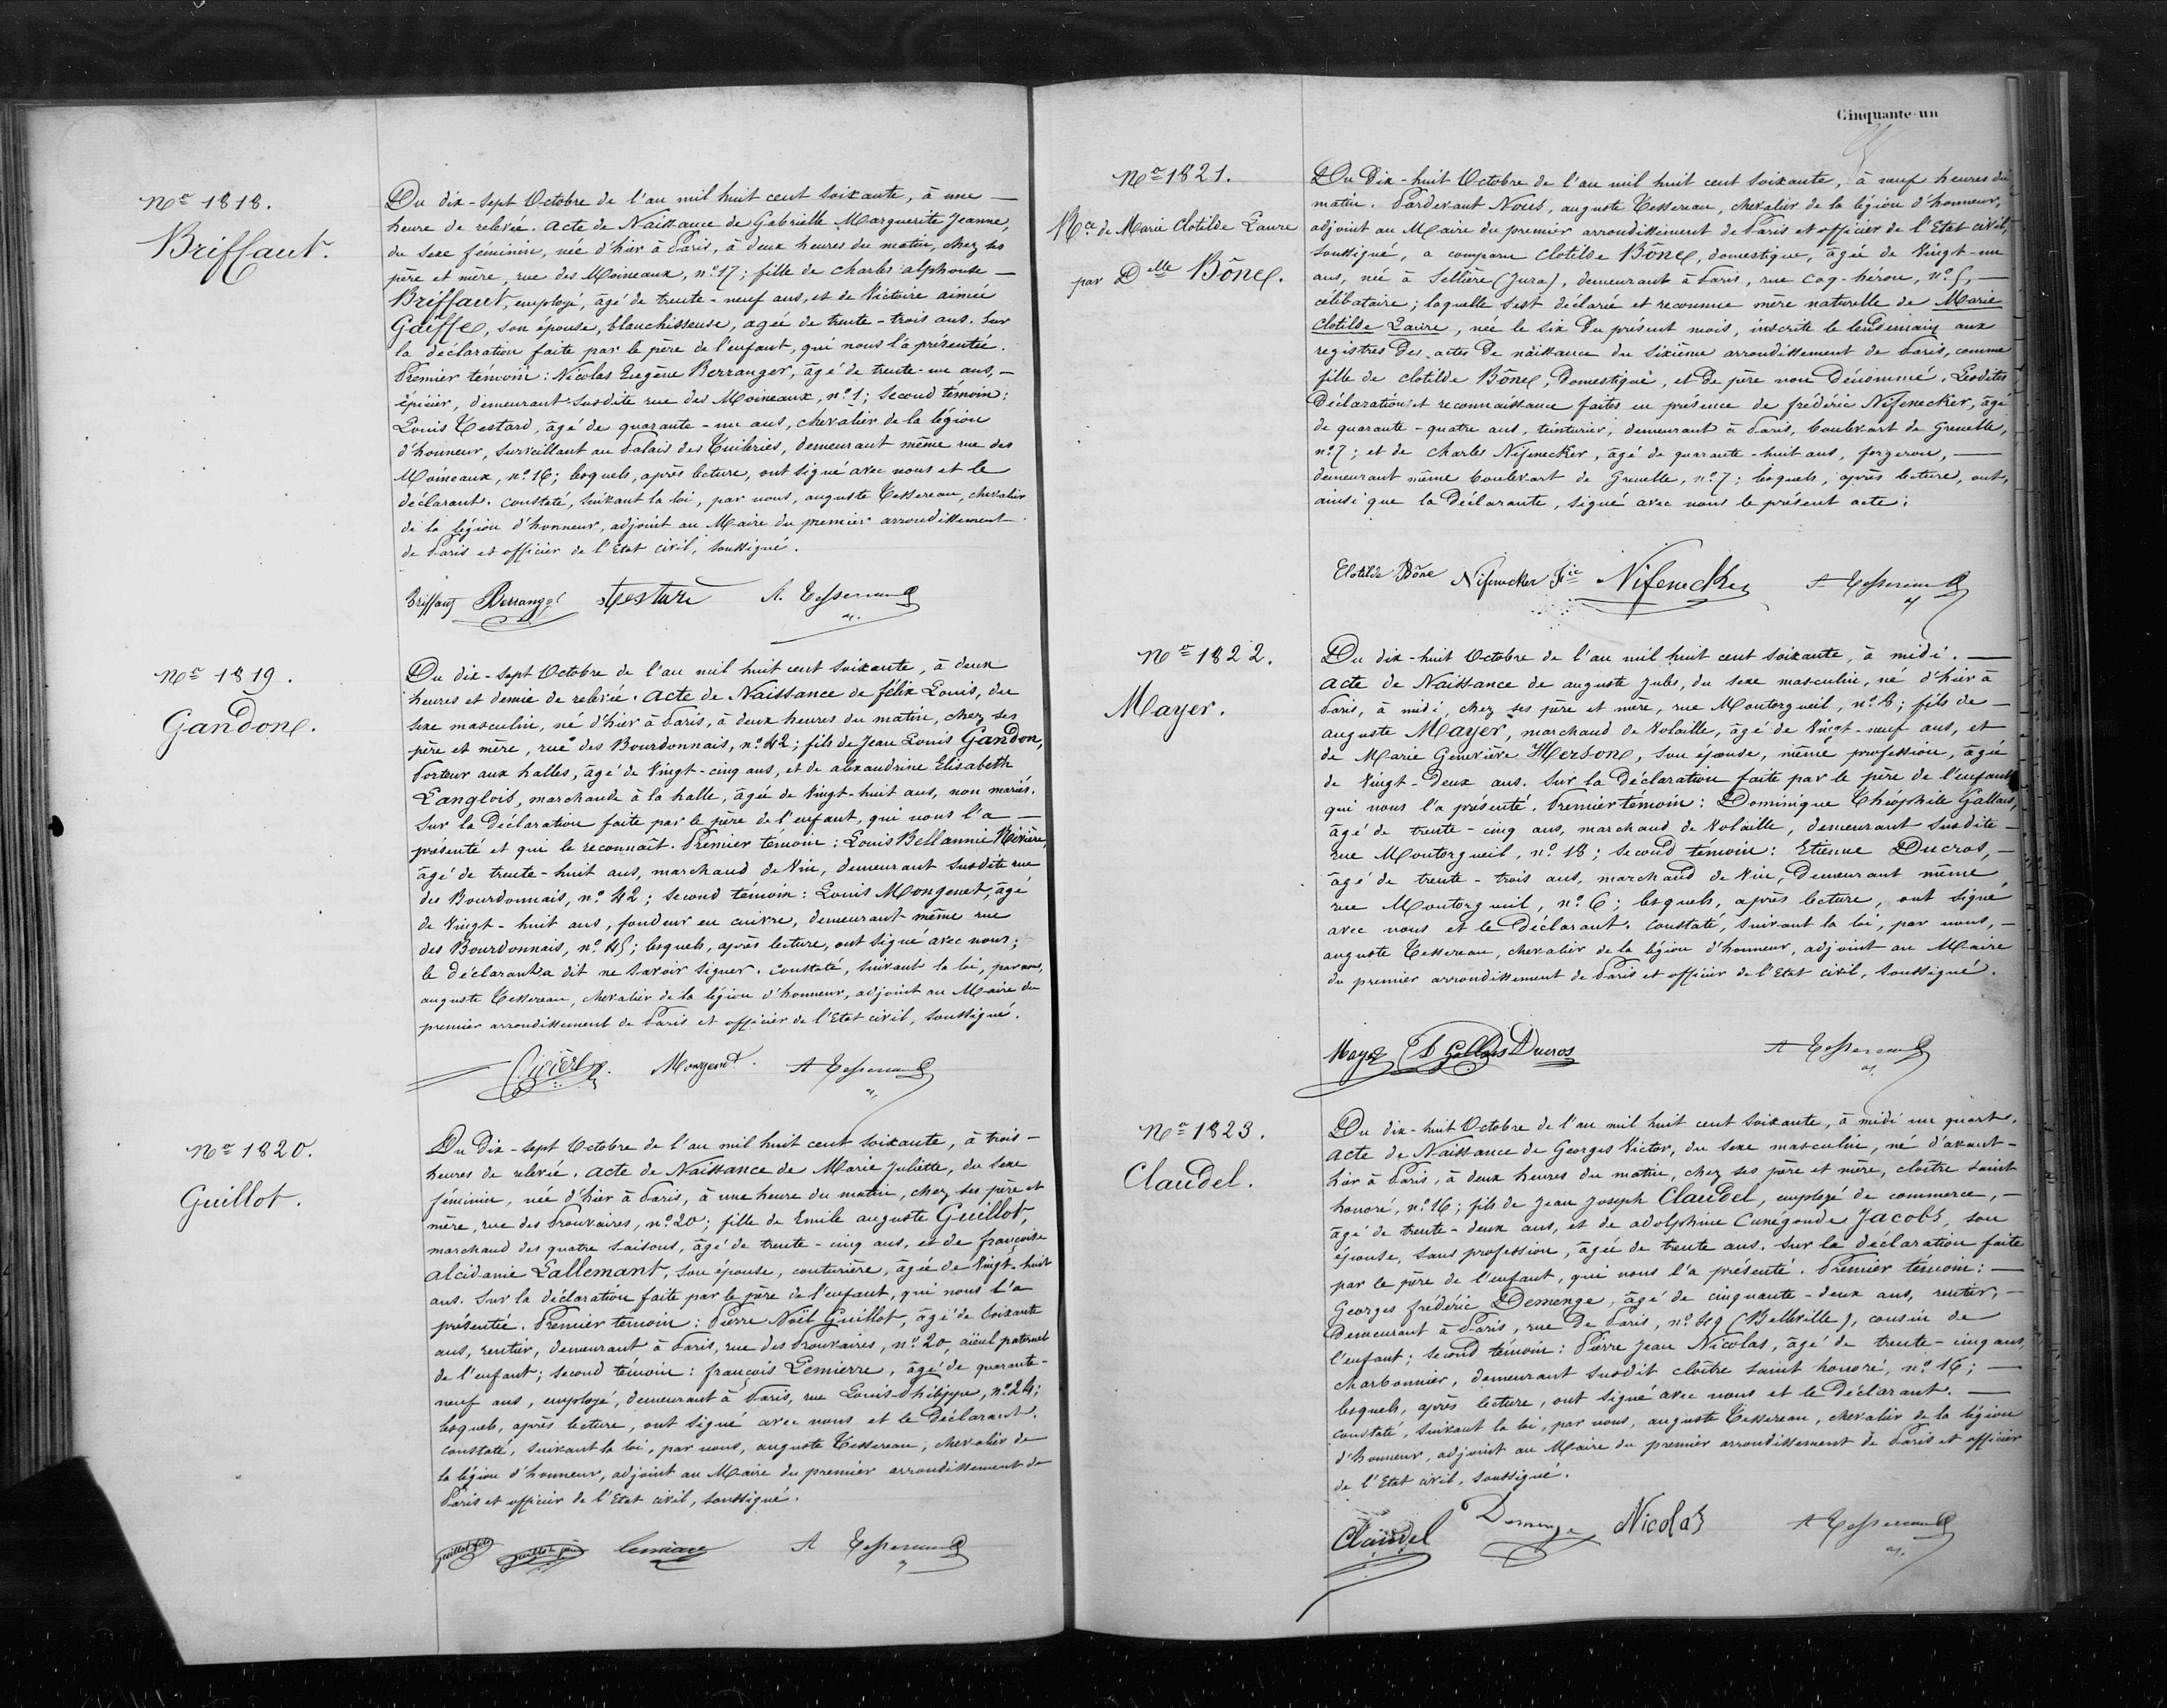 No 1818.
Briffaut.
Du dix-sept Octobre de l'an mil huit cent soixante, à une —
heure de relevée. Acte de Naissance de Gabrielle Marguerite Jeanne,
du sexe féminin, née d'hier à Paris, à deux heures du matin, chez ses
père et mère, rue des Moineaux, no 17; fille de Charles Alphonse —
Briffaut, employé, âgé de trente-neuf ans, et de Victoire Aimée
Gaiffe, son épouse, blanchisseuse, agée de trente-trois ans. Sur
la déclaration faite par le père de l'enfant, qui nous l'a présentée.
Premier témoin: Nicolas Eugène Berranger, âgé de trente-un ans, —
épicier, demeurant susdite rue des Moineaux, no 1; Second témoin:
Louis Testard, âgé de quarante-un ans, chevalier de la légion
d'honneur, surveillant au Palais des Tuileries, demeurant même rue des
Moineaux, no 16; lesquels, après lecture, ont signé avec nous et le
déclarant. Constaté, suivant la loi, par nous, auguste Tessereau, chevalier
de la légion d'honneur, adjoint au Maire du premier arrondissement
de Paris et officier de l'Etat civil, soussigné.
Briffaut Berranger Testard A. Tessereau
No 1819.
Gandon.
Du dix-sept Octobre de l'an mil huit cent soixante, à deux
heures et demie de relevée. Acte de Naissance de félix Louis, du
sexe masculin, né d'hier à Paris, à deux heures du matin, chez ses
père et mère, rue des Bourdonnais, no 42; fils de Jean Louis Gandon,
Porteur aux halles, âgé de vingt-cinq ans, et de alexandrine Elisabeth
Langlois, marchande à la halle, âgée de vingt-huit ans, non mariés.
Sur la déclaration faite par le père de l'enfant, qui nous l'a —
présenté et qui le reconnait. Premier témoin: Louis Bellannie Rivière,
âgé de trente-huit ans, marchand de Vin, demeurant susdite rue
des Bourdonnais, no 42; second témoin: Louis Mongenet, âgé
de vingt-huit ans, fondeur en cuivre, demeurant même rue
des Bourdonnais, no 45; lesquels, après lecture, ont signé avec nous;
le déclarant a dit ne savoir signer. Constaté, suivant la loi, par nous,
auguste Tessereau, chevalier de la légion d'honneur, adjoint au Maire du
premier arrondissement de Paris et officier de l'Etat civil, soussigné.
Mongenet. A Tessereau
No 1820.
Guillot.
Du Dix-sept Octobre de l'an mil huit cent soixante, à trois —
heures de relevée. Acte de Naissance de Marie Juliette, du sexe
féminin, née d'hier à Paris, à une heure du matin, chez ses père et
mère, rue des Prouvaires, no 20; fille de Emile auguste Guillot,
marchand des quatre saisons, âgé de trente-cinq ans, et de françoise
alcidanie Lallemant, son épouse, couturière, âgée de vingt-huit
ans. Sur la déclaration faite par le père de l'enfant, qui nous l'a
présentée. Premier témoin: Pierre Noël Guillot, âgé de soixante
ans, rentier, demeurant à Paris, rue des Prouvaires, no 20, aïeul paternel
de l'enfant; second témoin: françois Lemierre, âgé de quarante-
neuf ans, employé, demeurant à Paris, rue Louis-Philippe, no 24;
lesquels, après lecture, ont signé avec nous et le déclarant.
constaté, suivant la loi, par nous, auguste Tessereau, chevalier de
la légion d'honneur, adjoint au Maire du premier arrondissement de
Paris et officier de l'Etat civil, soussigné.
Guillot fils Guillot père Lemierre A Tessereau
Cinquante-un
No 1821.
Rce de Marie Clotilde Laure
par Delle Bône.
Du Dix-huit Octobre de l'an mil huit cent soixante, à neuf heures du
matin. Pardevant Nous, auguste Tessereau, chevalier de la légion d'honneur,
adjoint au Maire du premier arrondissement de Paris et officier de l'Etat civil,
soussigné, a comparu Clotilde Bône, domestique, âgée de vingt-un
ans, née à Sellière (Jura), demeurant à Paris, rue Coq-héron, no 5, —
célibataire; laquelle s'est déclarée et reconnue mère naturelle de Marie
Clotilde Laure, née le six du présent mois, inscrite le lendemain aux
registres des actes de naissance du sixième arrondissement de Paris, comme
fille de Clotilde Bône, Domestique, et de père non Dénommé. Lesdites
Déclaration et reconnaissance faites en présence de frédéric Nifenecker, âgé
de quarante-quatre ans, teinturier, demeurant à Paris, boulevart de Grenelle,
no 7; et de Charles Nifenecker, âgé de quarante-huit ans, forgeron, —
demeurant même boulevart de Grenelle, no 7; lesquels, après lecture, ont,
ainsi que la Déclarante, signé avec nous le présent acte.
Clotilde Bône Nifenecker Fic Nifenecker A Tessereau
No 1822.
Mayer.
Du dix-huit Octobre de l'an mil huit cent soixante, à midi. —
Acte de Naissance de auguste Jules, du sexe masculin, né d'hier à
Paris, à midi, chez ses père et mère, rue Montorgueil, no 8; fils de —
auguste Mayer, marchand de Volaille, âgé de vingt-neuf ans, et
de Marie Geneviève Herson, son épouse, même profession, âgée
de vingt-deux ans. Sur la Déclaration faite par le père de l'enfant
qui nous l'a présenté. Premier témoin: Dominique Théophile Gallais,
âgé de trente-cinq ans, marchand de Volaille, demeurant susdite —
rue Montorgueil, no 18; second témoin: Etienne Ducros, —
âgé de trente-trois ans, marchand de Vin, Demeurant même
rue Montorgueil, no 6; lesquels, après lecture, ont signé
avec nous et le Déclarant. Constaté, suivant la loi, par nous, —
auguste Tessereau, chevalier de la légion d'honneur, adjoint au Maire
du premier arrondissement de Paris et officier de l'Etat civil, soussigné.
Mayer Gallais Ducros A Tessereau
No 1823.
Claudel.
Du dix-huit Octobre de l'an mil huit cent soixante, à midi un quart.
Acte de Naissance de Georges Victor, du sexe masculin, né d'avant-
hier à Paris, à deux heures du matin, chez ses père et mère, cloître saint
honoré, no 16; fils de Jean Joseph Claudel, employé de commerce, —
âgé de trente-deux ans, et de adolphine Cunégonde Jacobs, son
épouse, sans profession, âgée de trente ans. Sur la déclaration faite
par le père de l'enfant, qui nous l'a présenté. Premier témoin: —
Georges frédéric Demenge, âgé de cinquante-deux ans, rentier, —
Demeurant à Paris, rue De Paris, no 49 (Belleville), cousin de
l'enfant; second témoin: Pierre Jean Nicolas, âgé de trente-cinq ans,
charbonnier, demeurant susdit cloître saint honoré, no 16; —
lesquels, après lecture, ont signé avec nous et le Déclarant. —
Constaté, suivant la loi, par nous, auguste Tessereau, chevalier de la légion
d'honneur, adjoint au Maire du premier arrondissement de Paris et officier
de l'Etat civil, soussigné.
Claudel Demenge Nicolas A Tessereau